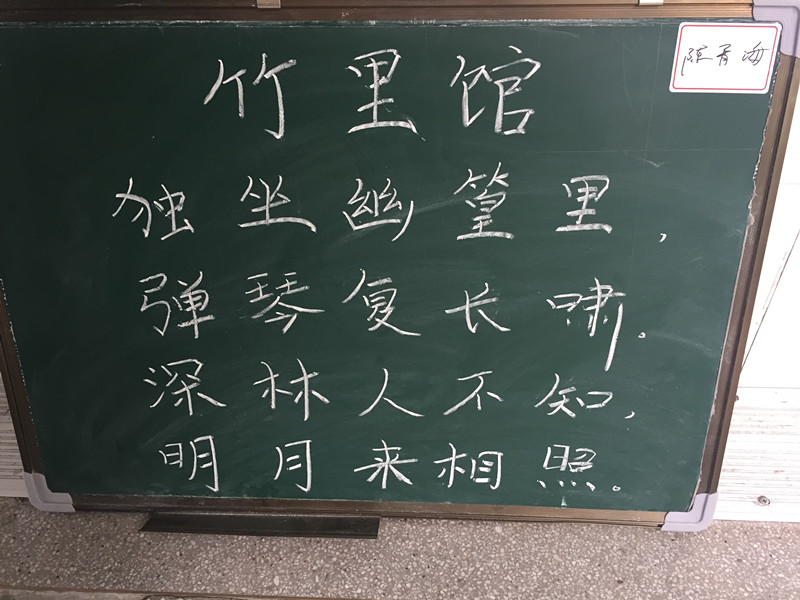 竹里馆
陈青海
独坐幽篁里，
弹琴复长啸。
深林人不知，
明月来相照。